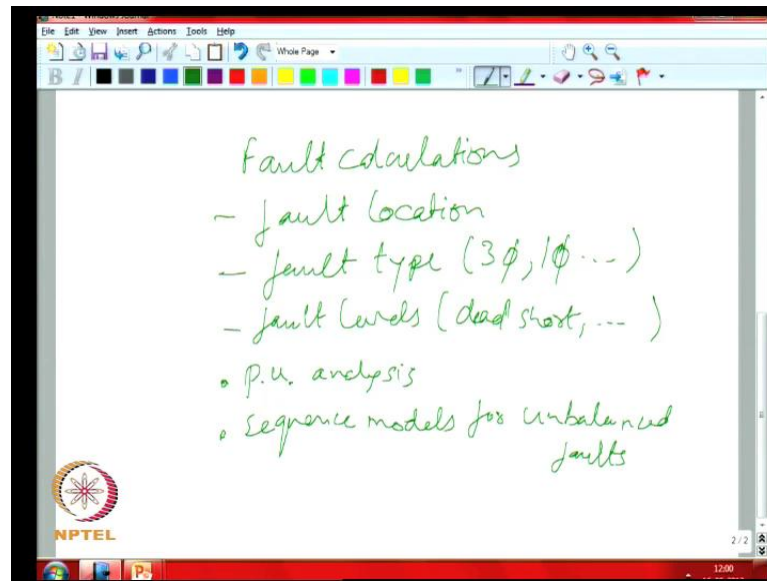 Note1 - Windows Journal
File Edit View Insert Actions Tools Help
Whole Page
B I
Fault calculations
- fault location
- fault type (3φ, 1φ ...)
- fault levels (dead short, ...)
• p.u. analysis
• sequence models for unbalanced
faults
NPTEL
2 / 2
12:00